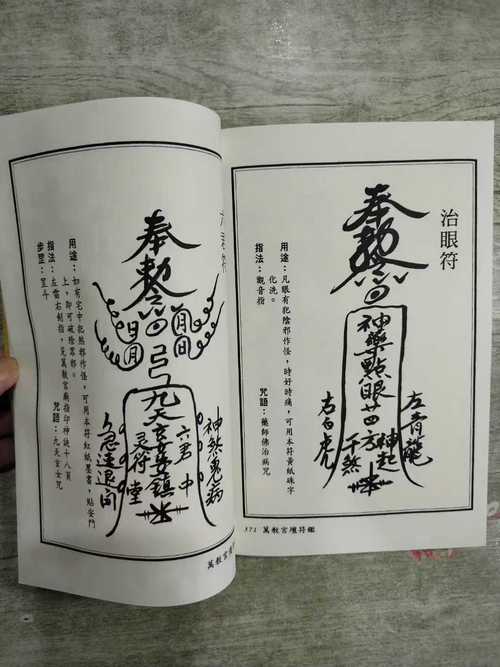 治眼符
奉勅令
神藥點眼廿四方
神起
千煞
左青龍
右白虎
用途：凡眼有犯陰邪作怪，時好時痛，可用本符黃紙硃字
化洗。
指法：觀音指
咒語：藥師佛治病咒
371 萬教宮壇符鑑
奉勅令
九天玄女鎮
神煞兔病
六君中
灵符堂
急速退向
用途：如有宅中犯煞邪作怪，可用本符紅紙墨書，貼安門
上，即可破除眾邪。
指法：左雷右劍指，見萬教宮廟指印神訣十八頁
步罡：罡斗
咒語：九天玄女咒
萬教宮